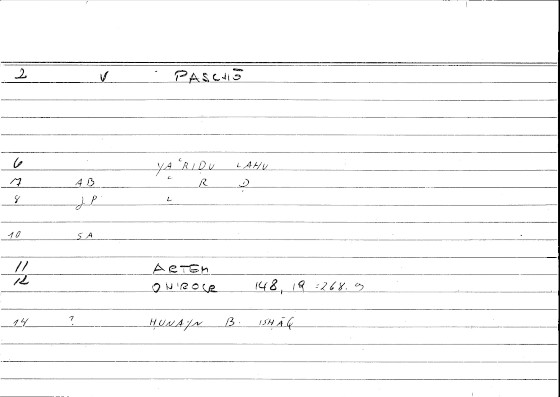 2 V PASCHŌ
6 YAʿRIDU LAHU
7 AB ʿ R Ḍ
8 JP L
10 SA
11 ARTEM
12 ONIROCR 148, 19 = 268.9
14 ? ḤUNAYN B. ISḤĀQ